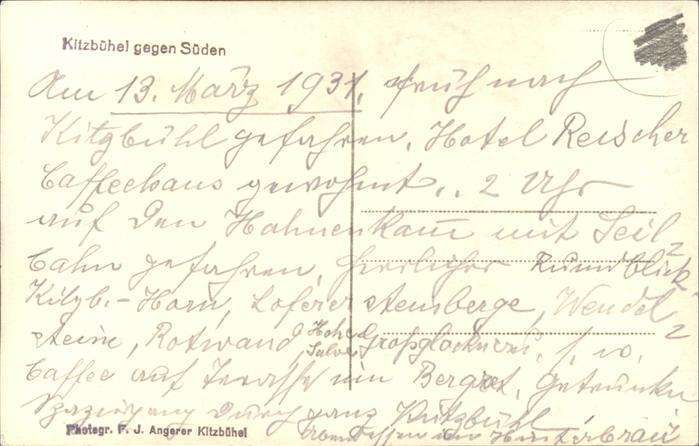 Kitzbühel gegen Süden
Am 13. März 1931, früh nach
Kitzbühl gefahren, Hotel Reischer
Caffeehaus gewohnt.. 2 Uhr
auf den Hahnenkam mit Seil
bahn gefahren, Herrlicher Rundblick
Kitzb.-Horn, Loferer Steinberge, Wendel
steine, Rotwand, Hohe Salve Großglockner u. s. w.
Caffee auf Terasse im Berg getrunken
Spaziergang durch ganz Kitzbühl
Abendessen im Hinterbräu
Photogr. F. J. Angerer Kitzbühel